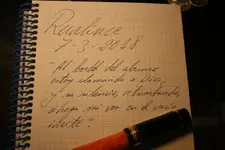 7-3-2018
"Al borde del abismo
estoy clamando a Dios,
y su silencio, retumbando,
ahoga mi voz en el vacío
inerte".